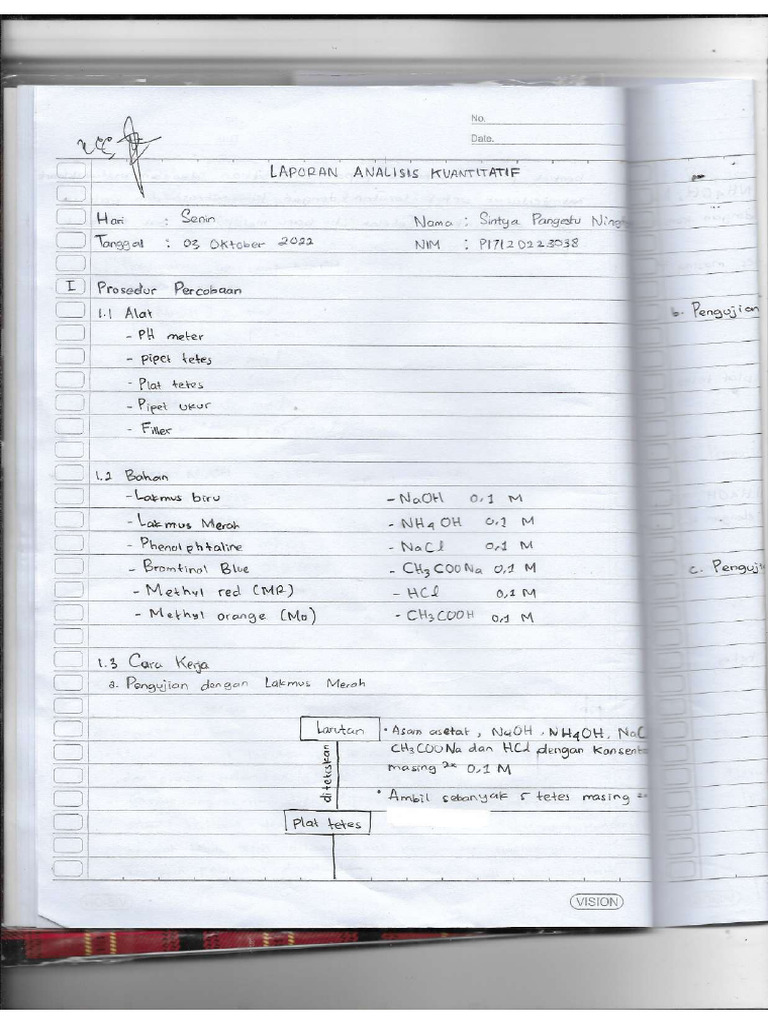 No.
Date.
LAPORAN ANALISIS KUANTITATIF
Hari : Senin
Nama : Sintya Pangestu
Tanggal : 03 Oktober 2022
NIM : P17120223038
I Prosedur Percobaan
1.1 Alat
- PH meter
- pipet tetes
- Plat tetes
- Pipet ukur
- Filler
1.2 Bahan
- Lakmus biru - NaOH 0,1 M
- Lakmus Merah - NH4OH 0,1 M
- Phenolphtaline - NaCl 0,1 M
- Bromtinol Blue - CH3COONa 0,1 M
- Methyl red (MR) - HCl 0,1 M
- Methyl orange (MO) - CH3COOH 0,1 M
1.3 Cara Kerja
a. Pengujian dengan Lakmus Merah
Larutan
• Asam asetat, NaOH, NH4OH, NaC
CH3COONa dan HCl dengan Konsent
masing 2x 0,1 M
diteteskan
• Ambil sebanyak 5 tetes masing 2x
Plat tetes
VISION
b. Pengujian
c. Penguji